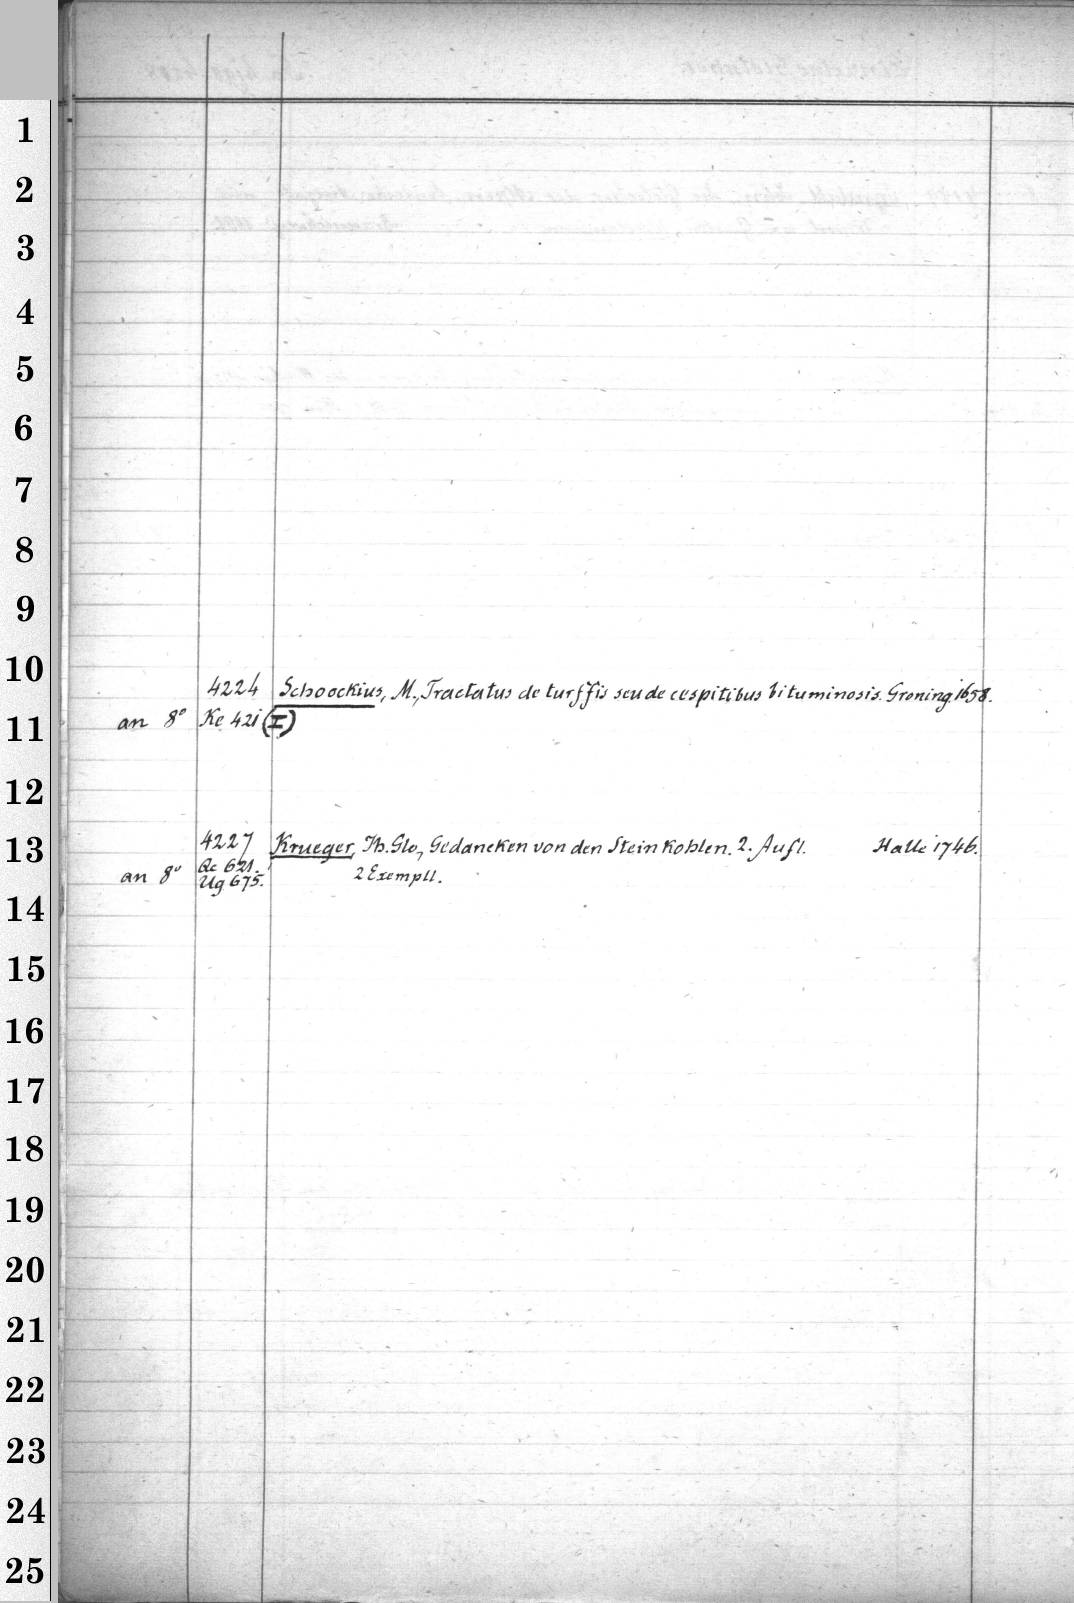 1
2
3
4
5
6
7
8
9
10
4224 Schoockius, M., Tractatus de turffis seu de cespitibus bituminosis. Groning. 1658.
11
an 8° Ke 421 (I)
12
13
4227 Krueger, Jh. Glo, Gedancken von den Steinkohlen. 2. Aufl. Halle 1746.
an 8° Qc 621.
Ug 675. 2 Exempll.
14
15
16
17
18
19
20
21
22
23
24
25